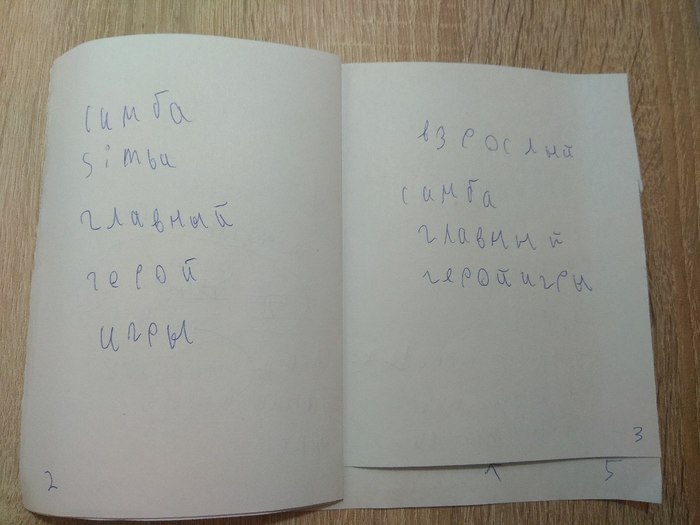 симба
simba
главный
герой
игры
2
взрослый
симба
главный
герой игры
3
5